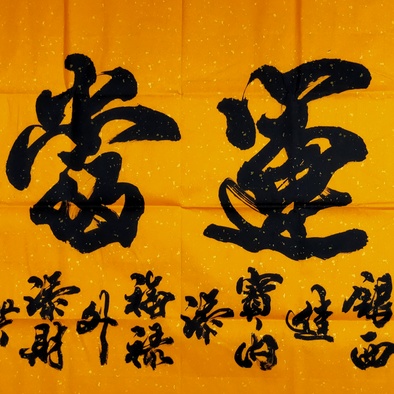 運當
銀西進寶內添福祿外添財